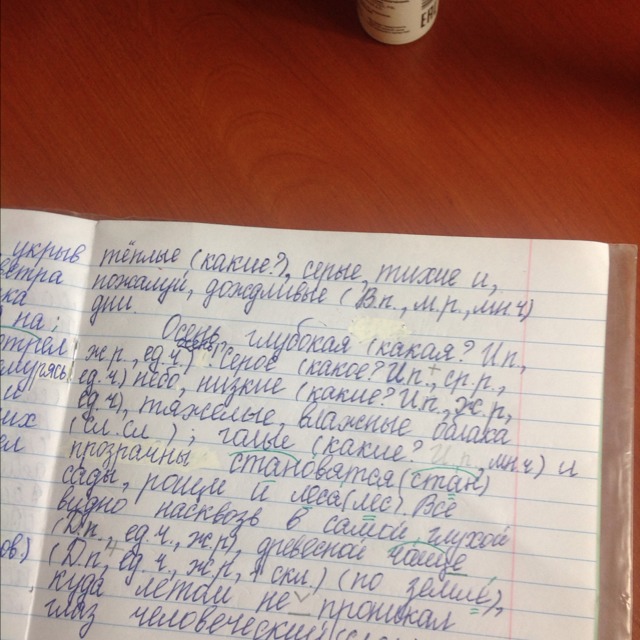 EAC
укрыв
ветра
ка
на;
и
их
ов.)
тёплые (какие?), серые, тихие и,
пожалуй, дождливые (В.п., м.р., мн.ч)
дни.
Осень глубокая (какая? И.п,
ж.р., ед.ч.). серое (какое? И.п., ср.р.,
ед.ч) небо, низкие (какие? И.п., ж.р,
ед.ч), тяжёлые, влажные облака
(сл.сл.); голые (какие? И.п., мн.ч) и
прозрачны становятся (стан)
сады, рощи и леса (лес). Всё
видно насквозь в самой глухой
(Д.п., ед.ч., ж.р), древесной чаще
(Д.п, ед.ч., ж.р, 1 скл.) (по земле),
куда летом не проникал
глаз человеческий